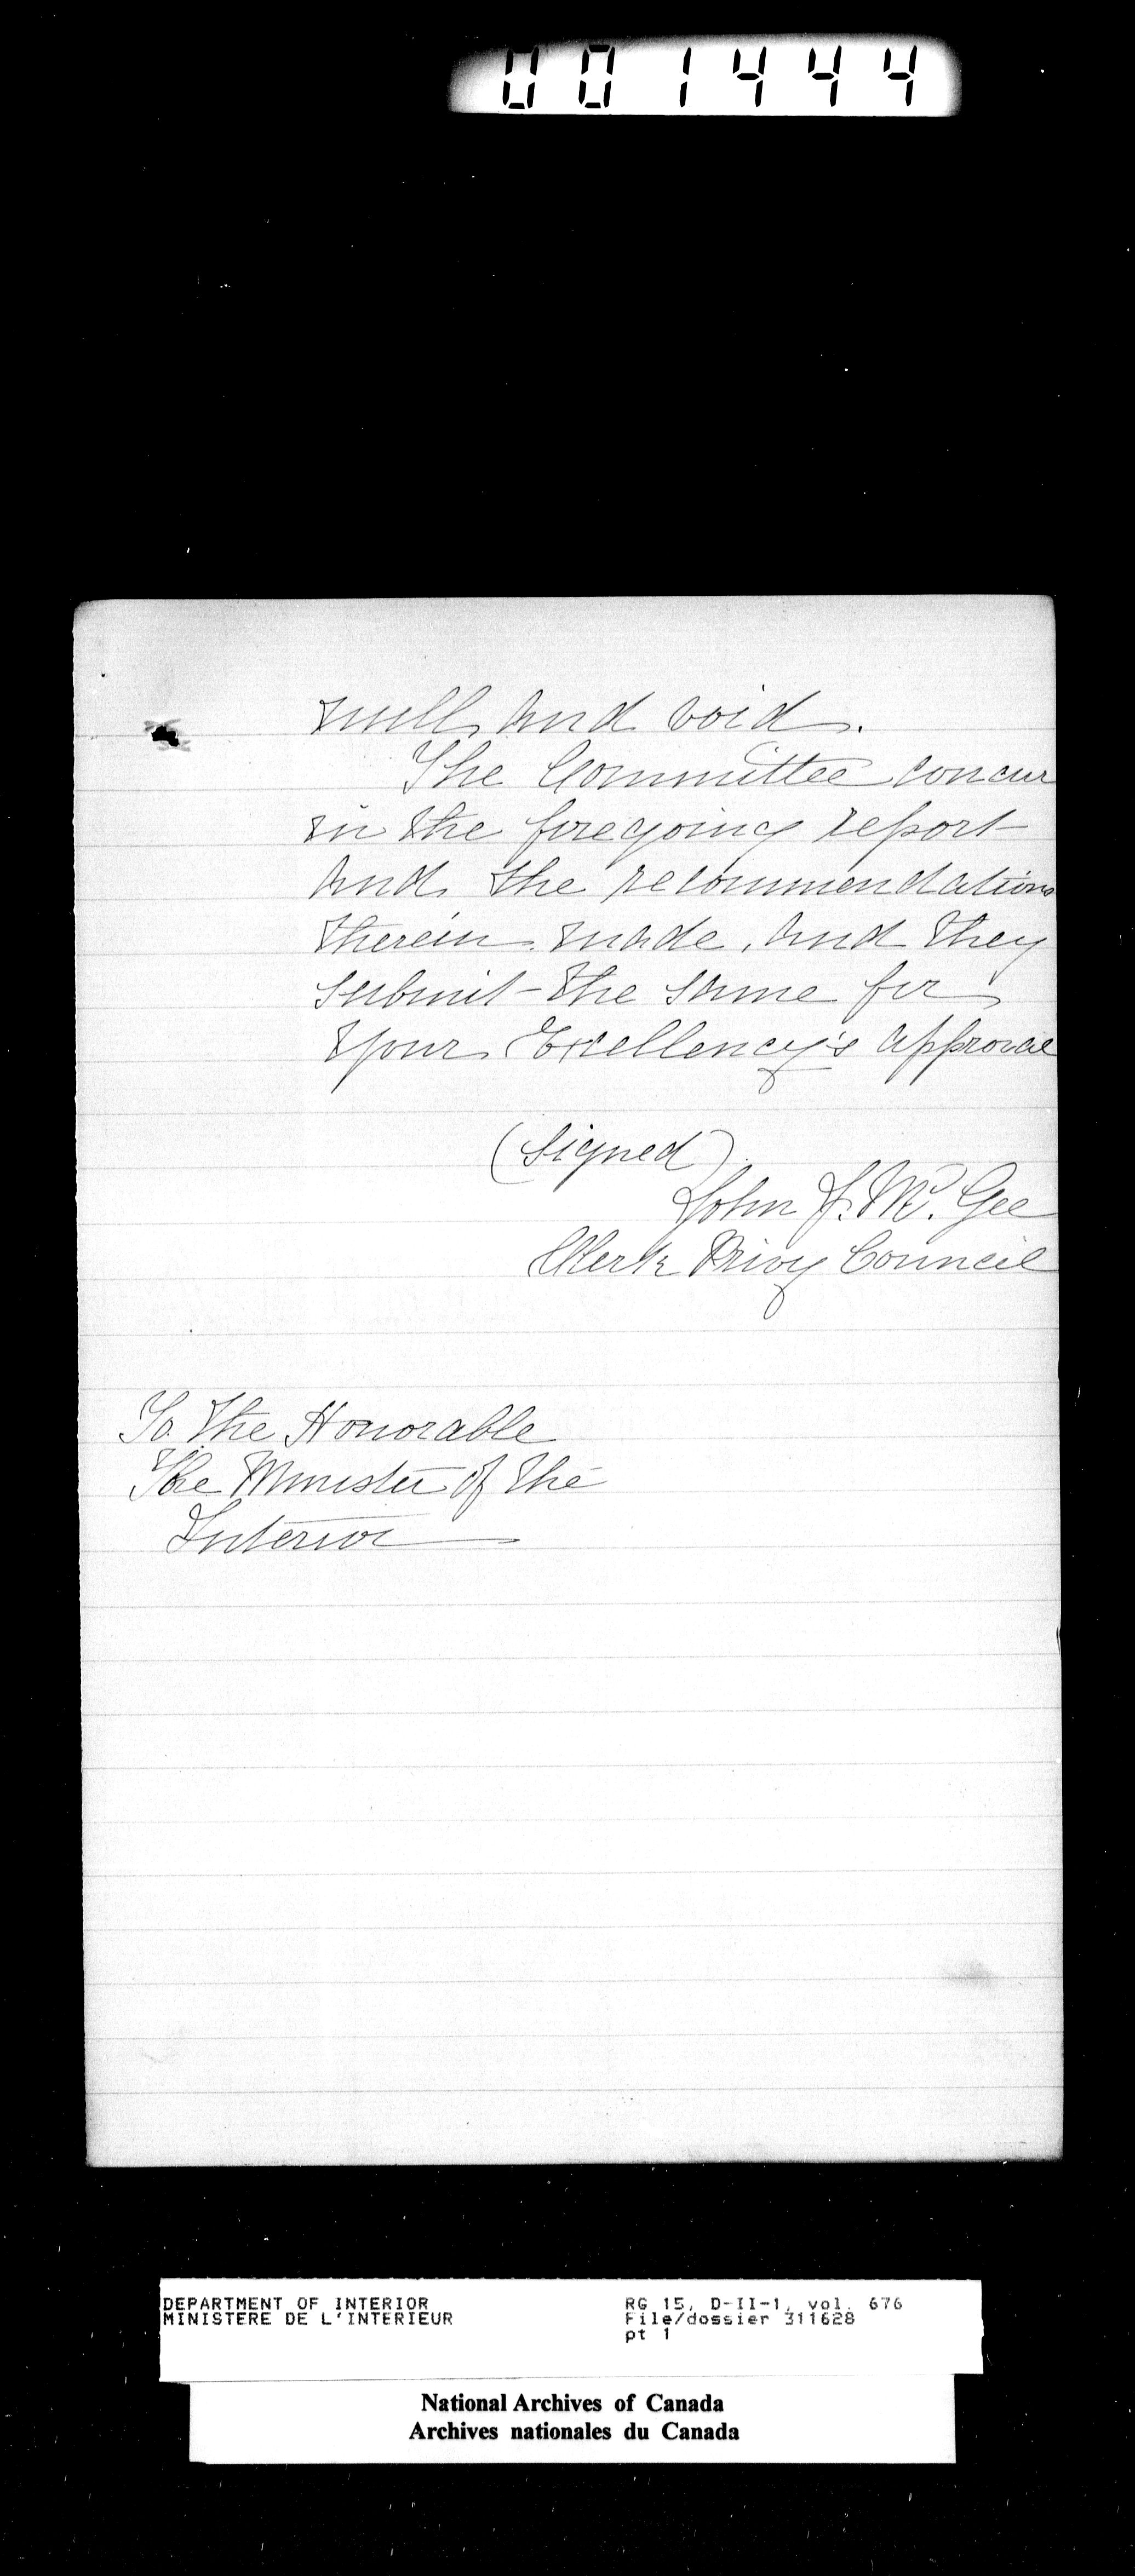 001444
null and void.
The Committee concur
in the foregoing report
and the recommendations
therein made, and they
submit the same for
Your Excellency's approval
(signed)
John J. McGee
Clerk Privy Council
To The Honorable
The Minister of the
Interior
DEPARTMENT OF INTERIOR RG 15, D-II-1, vol. 676
MINISTERE DE L'INTERIEUR File/dossier 311628
pt 1
National Archives of Canada
Archives nationales du Canada